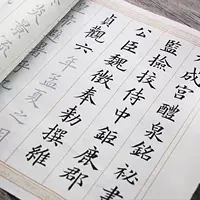 成宮醴泉銘祕書
監撿挍侍中鉅鹿郡
公臣魏徵奉勅撰維
貞觀六
年孟夏之